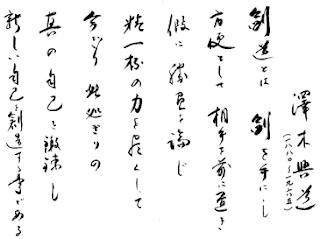 澤木興道
(一八八〇〜一九六五)
剣道とは 剣を手にし
方便として 相手を前に置き
仮に勝負を論じ
精一杯の力を尽くして
今いり 其処ぎりの
真の自己を鍛錬し
新しい自己を創造する事である